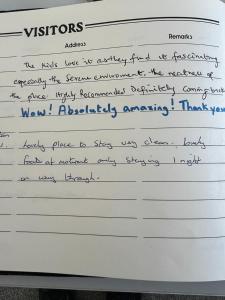 VISITORS
Address Remarks
The kids love it as they find it fascinating
especially the serene environment, the neatness of
the place. Highly Recommended. Definitely coming back
Wow! Absolutely amazing! Thank you
Lovely place to stay very clean. Lovely
food at only staying 1 night
on way through.